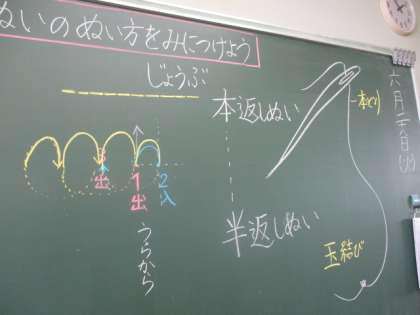 ぬいのぬい方をみにつけよう
じょうぶ
本返しぬい
半返しぬい
一本どり
玉結び
3出
1出
2入
うらから
六月二八日(火)